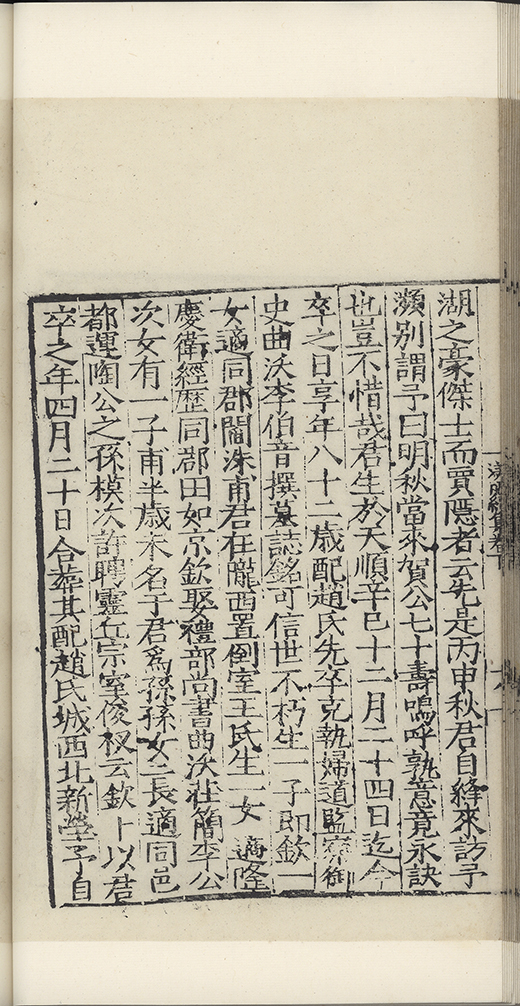 湖之豪傑士而賈隱者云先是丙申秋君自絳來訪予
瀕別謂予曰明秋當來賀公七十壽嗚呼孰意竟永訣
也豈不惜哉君生於天順辛巳十二月二十四日迄今
卒之日享年八十二歲配趙氏先卒克執婦道監察御
史曲沃李伯音撰墓誌銘可信世不朽生一子即欽一
女適同郡閻洙甫君在隴西置側室王氏生一女適隆
慶衛經歷同郡田如京欽娶禮部尚書曲沃莊簡李公
次女有一子甫半歲未名于君爲孫孫女二長適同邑
都運陶公之孫模次許聘靈丘宗室俊杈云欽卜以君
卒之年四月二十日合葬其配趙氏城西北新塋予自